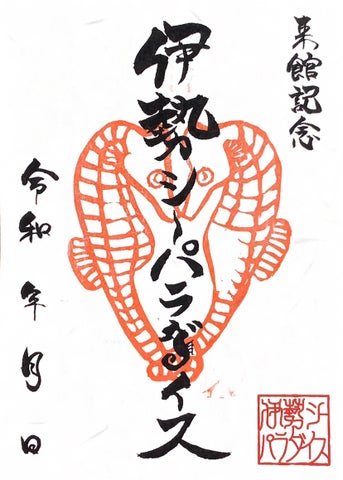 来館記念
伊勢シーパラダイス
令和 年 月 日
伊勢シーパラダイス